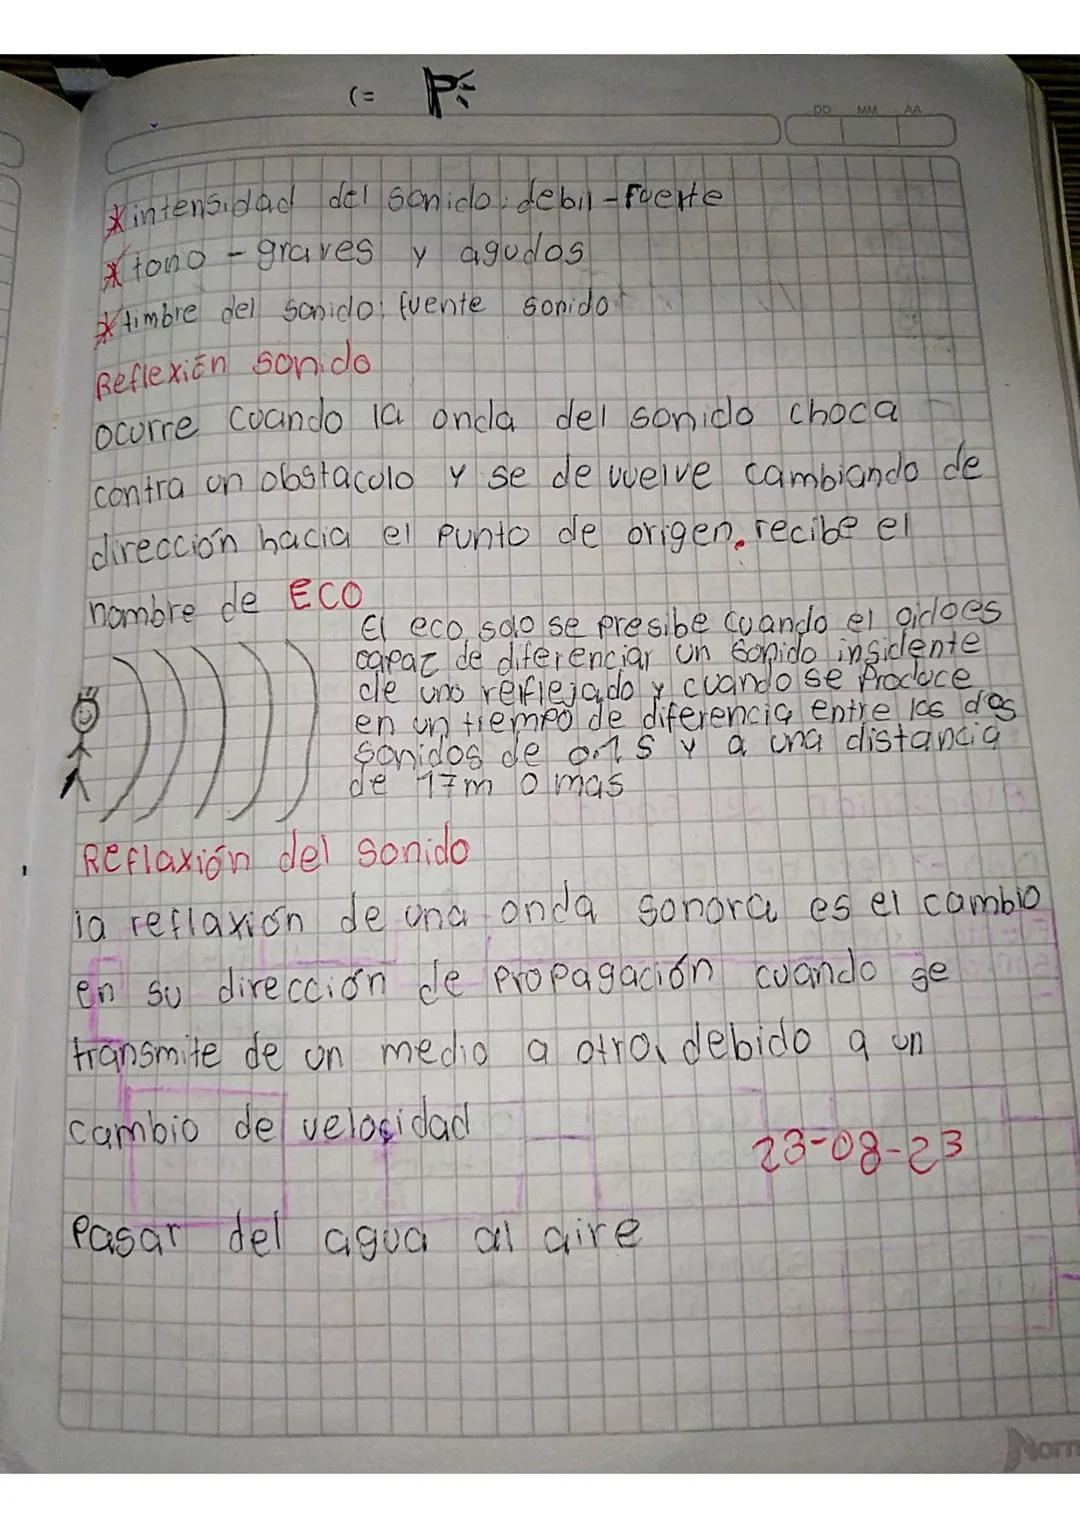 (= P
DD MM AA
*intensidad del sonido: debil-fuerte
*tono - graves y agudos
*timbre del sonido: fuente sonido
Reflexión sonido
ocurre cuando la onda del sonido choca
contra un obstaculo y se de vuelve cambiando de
dirección hacia el punto de origen. recibe el
nombre de ECO
El eco solo se presibe cuando el oido es
capaz de diferenciar un sonido insidente
de uno reiflejado y cuando se produce
en un tiempo de diferencia entre los dos
sonidos de 0.1 s y a una distancia
de 17m o mas
Reflaxión del sonido
la reflaxión de una onda sonora es el cambio
en su dirección de propagación cuando se
transmite de un medio a otro, debido a un
cambio de velocidad
23-08-23
Pasar del agua al aire
Norm